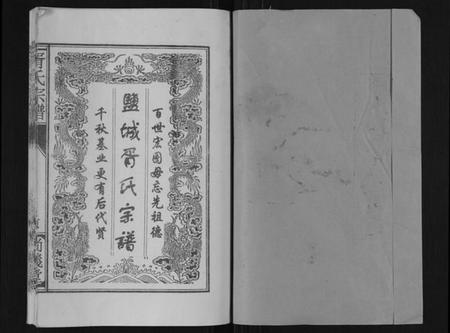 百世宏图毋忘先祖德
盐城胥氏宗谱
千秋基业更有后代贤
胥氏宗谱